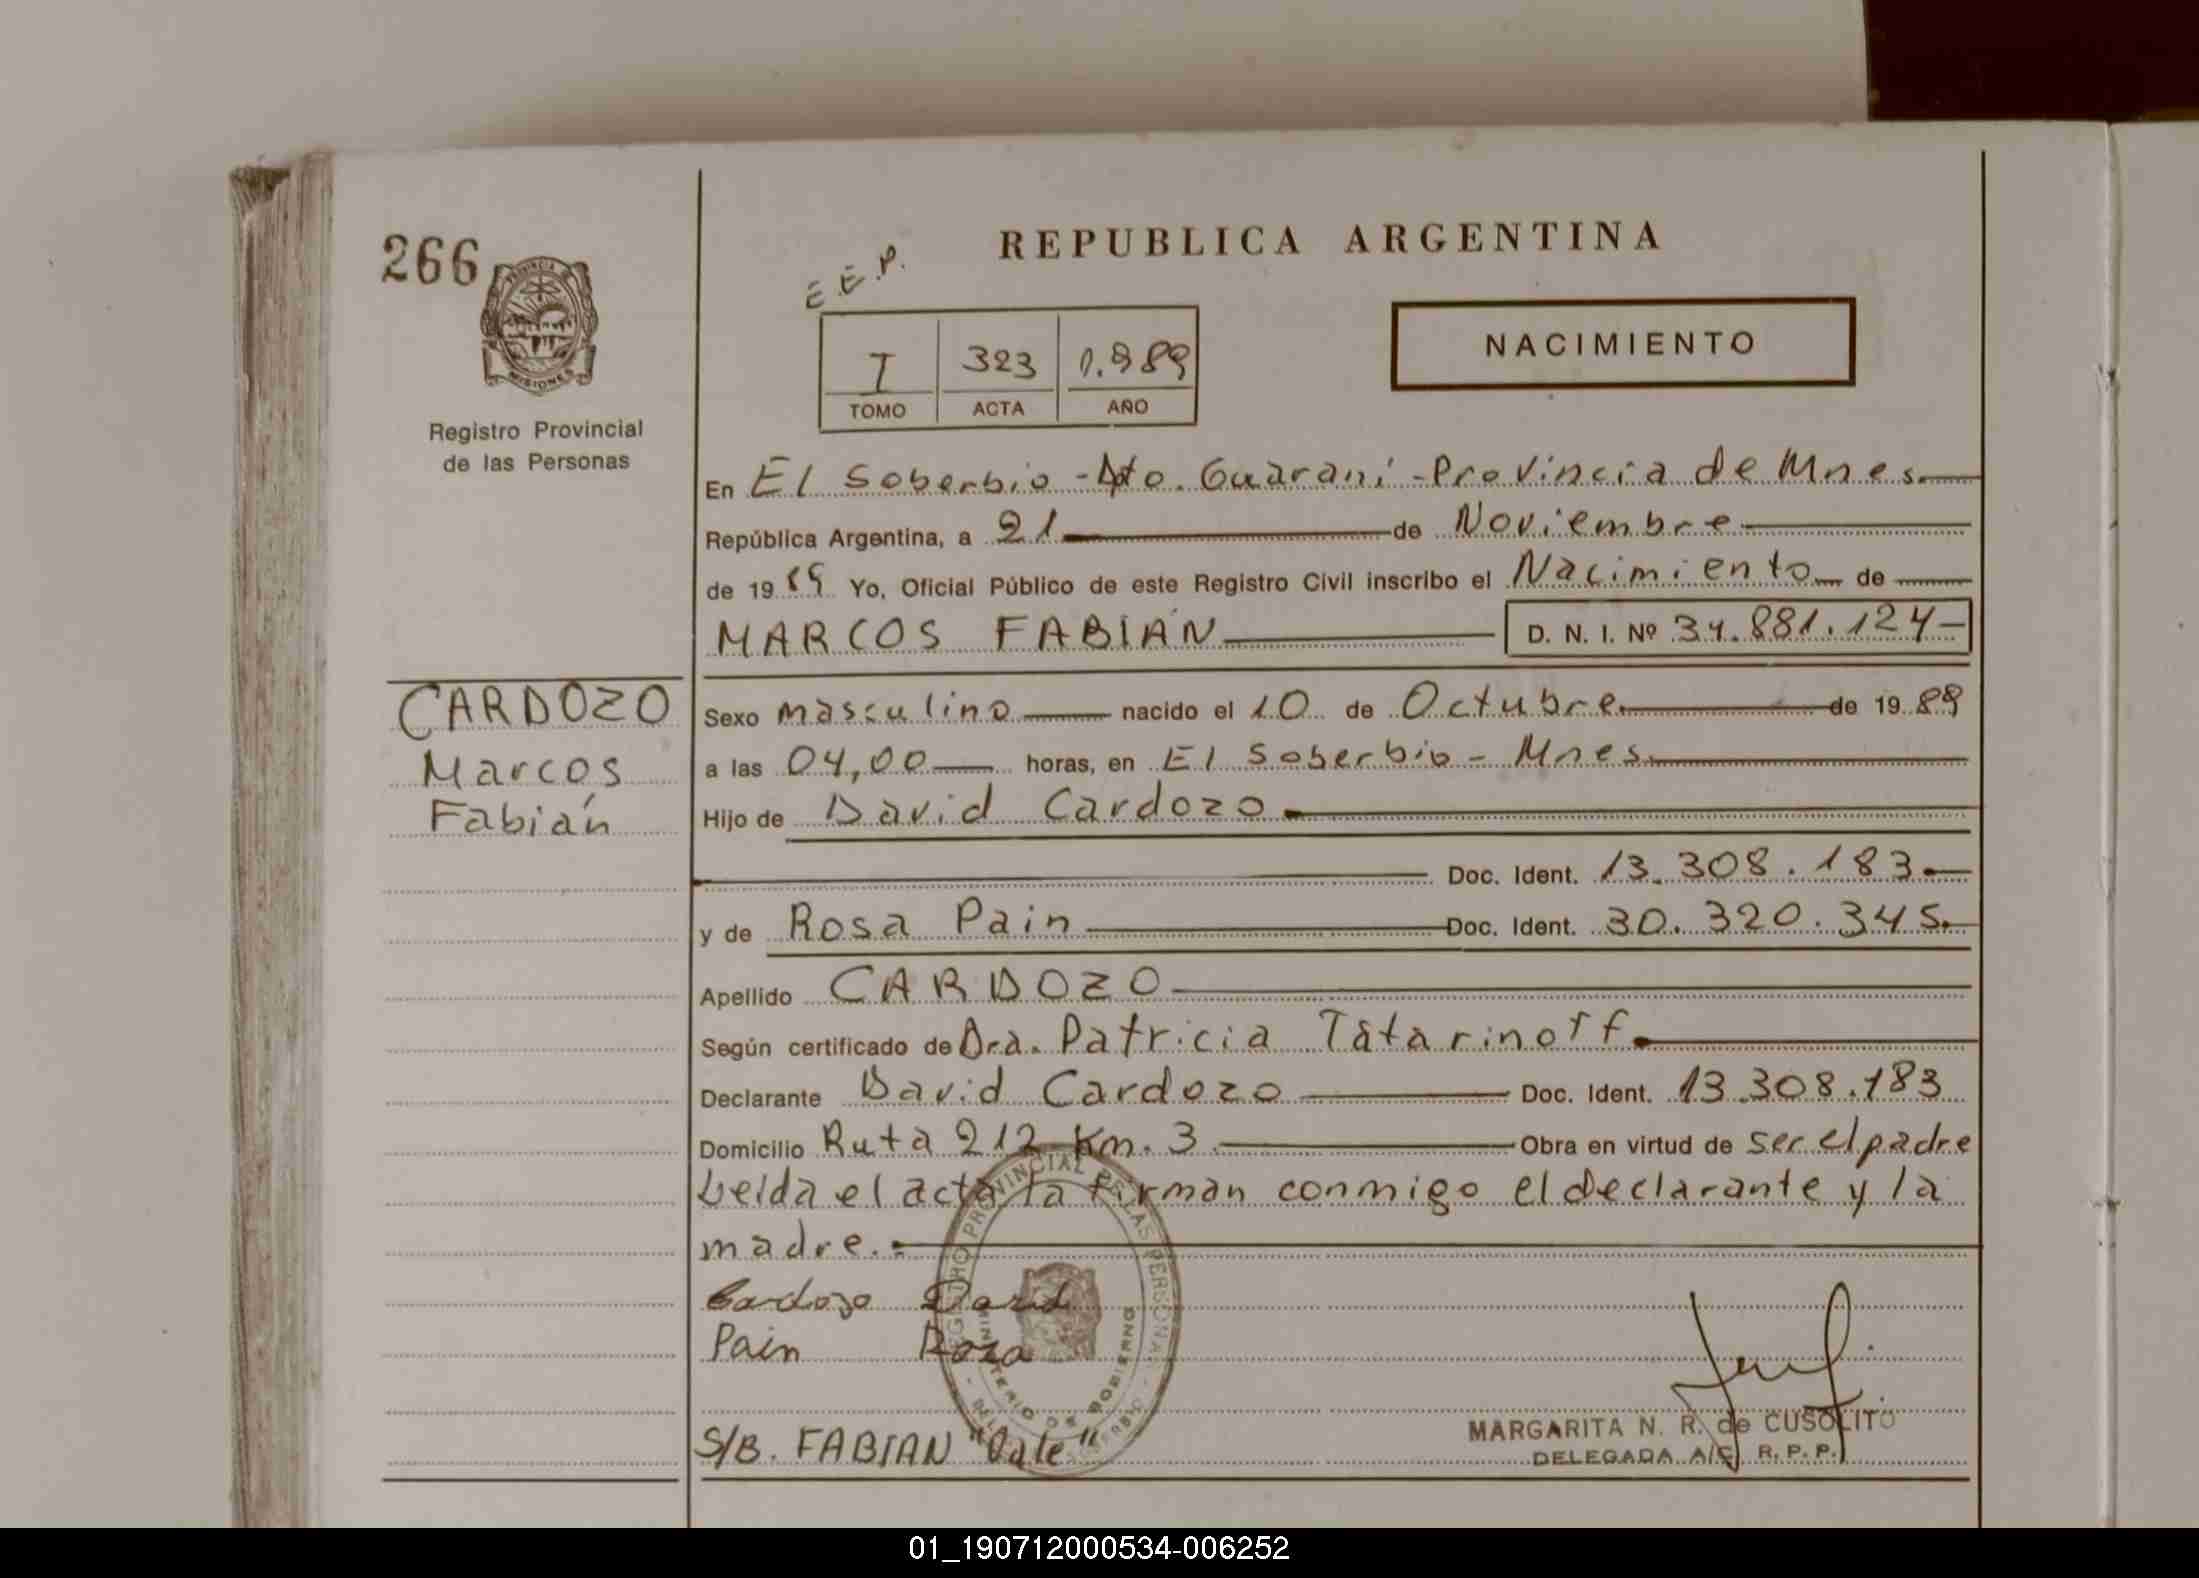 266
PROVINCIA DE
MISIONES
Registro Provincial
de las Personas
REPUBLICA ARGENTINA
E.E.P.
I 323 1.989
TOMO ACTA AÑO
NACIMIENTO
En El Soberbio - Dto. Guaraní - Provincia de Mnes.
República Argentina, a 21 de Noviembre
de 1989 Yo, Oficial Público de este Registro Civil inscribo el Nacimiento de
MARCOS FABIÁN D. N. I. Nº 34.881.124-
CARDOZO
Marcos
Fabián
Sexo masculino nacido el 10 de Octubre de 1989
a las 04,00 horas, en El Soberbio - Mnes.
Hijo de David Cardozo
Doc. Ident. 13.308.183.
y de Rosa Pain Doc. Ident. 30.320.345.
Apellido CARDOZO
Según certificado de Dra. Patricia Tatarinoff.
Declarante David Cardozo Doc. Ident. 13.308.183
Domicilio Ruta 212 Km. 3. Obra en virtud de ser el padre
Leida el acta la firman conmigo el declarante y la
madre.
Cardozo David
Pain Roza
REGISTRO PROVINCIAL DE LAS PERSONAS
MINISTERIO DE GOBIERNO
S/B. FABIAN "Vale"
MARGARITA N. R. de CUSOLITO
DELEGADA A/C R.P.P.
01_190712000534-006252